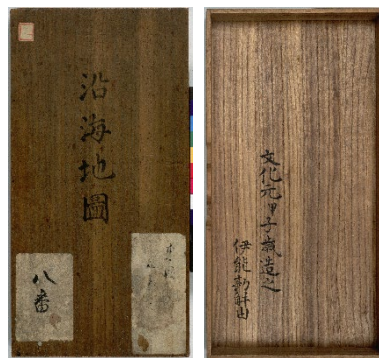 沿海地圖
八番
文化元甲子歳造之
伊能勘解由